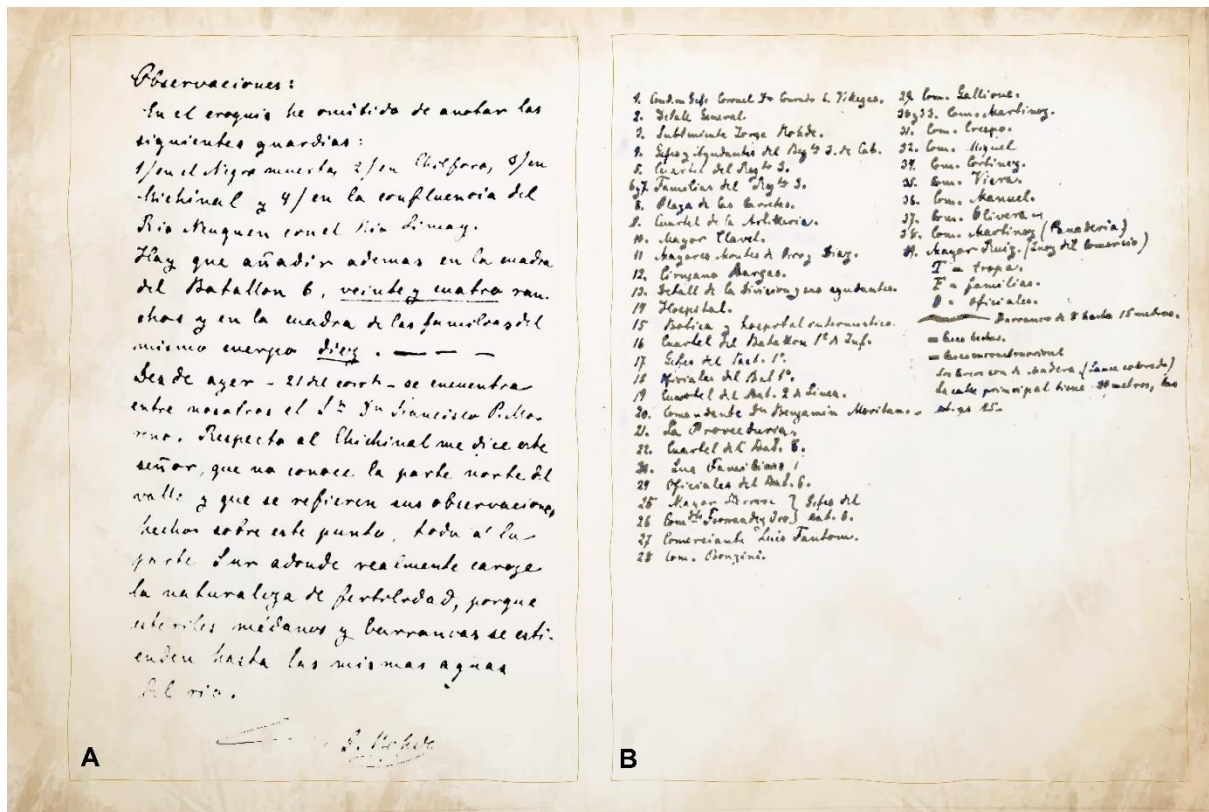 Observaciones:
En el croquis he omitido de anotar las
siguientes guardias:
1/ en el Nigro muerto, 2/ en Chilforo, 3/ en
Chichinal y 4/ en la confluencia del
Rio Neuquen con el Rio Limay.
Hay que añadir ademas en la cuadra
del Batallon 6, veinte y cuatro ran-
chos y en la cuadra de las familias del
mismo cuerpo diez. — — —
Desde ayer - 21 del corte - se encuentra
entre nosotros el Sr. Dn Francisco P. Mo-
reno. Respecto al Chichinal me dice este
señor, que no conoce la parte norte del
valle y que se refieren sus observaciones
hechas sobre este punto, todo a la
parte Sur adonde realmente caroze
la naturaleza de fertilidad, porque
esteriles médanos y barrancas se esti-
enden hasta las mismas aguas
del rio.
A
1. Coronel Dn Conrado E. Villegas.
2. Detale General.
3. Subteniente Jorge Rohde.
4. Gefes y Ayudantes del Regto 3. de Cab.
5. Cuartel del Regto 3.
6y7. Familias del Regto 3.
8. Plaza de las Carretas.
9. Cuartel de la Artilleria.
10. Mayor Clavel.
11 Mayores Montes de Oroz y Diaz.
12. Cirujano Vargas.
13. Detall de la division y sus ayudantes.
14 Hospital.
15 Botica y hospital
16 Cuartel del Batallon 1º de Inf.
17 Gefes del Bat. 1º.
18 Oficiales del Bat 1º.
19 Cuartel del Bat. 2 de Linea.
20. Comandante Dn Benjamin Moritan.
21. La Proveeduria,
22. Cuartel del Bat. 6.
23. Sus Familias
24 Oficiales del Bat. 6.
25 Mayor } Gefes del
26 Comdte Fernandez Oro } Bat. 6.
27 Comerciante Luis Fantom.
28 Com. Bonzini.
29. Com. Gallione.
30y33. Com. Martinez.
31. Com. Crespo.
32. Com. Miquel
34. Com. Cortinez.
35. Com. Viera.
36. Com. Manuel.
37. Com. Olivera
38. Com. Martinez (Panaderia)
39. Mayor Ruiz. (Juez del Comercio)
T = tropa.
F = familias.
O = oficiales.
Barranca de 8 hasta 15 metros.
= Casas hechas.
= Casas en construccion
Los cercos son de madera (Sauce colorado)
La calle principal tiene 30 metros, las
otras 25.
B